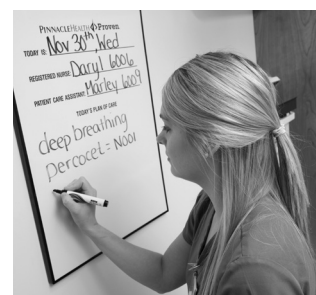 PINNACLEHEALTH Proven
TODAY IS: Nov 30th, Wed
REGISTERED NURSE: Daryl 6006
PATIENT CARE ASSISTANT: Marley 6009
TODAY'S PLAN OF CARE
deep breathing
Percocet = Noon